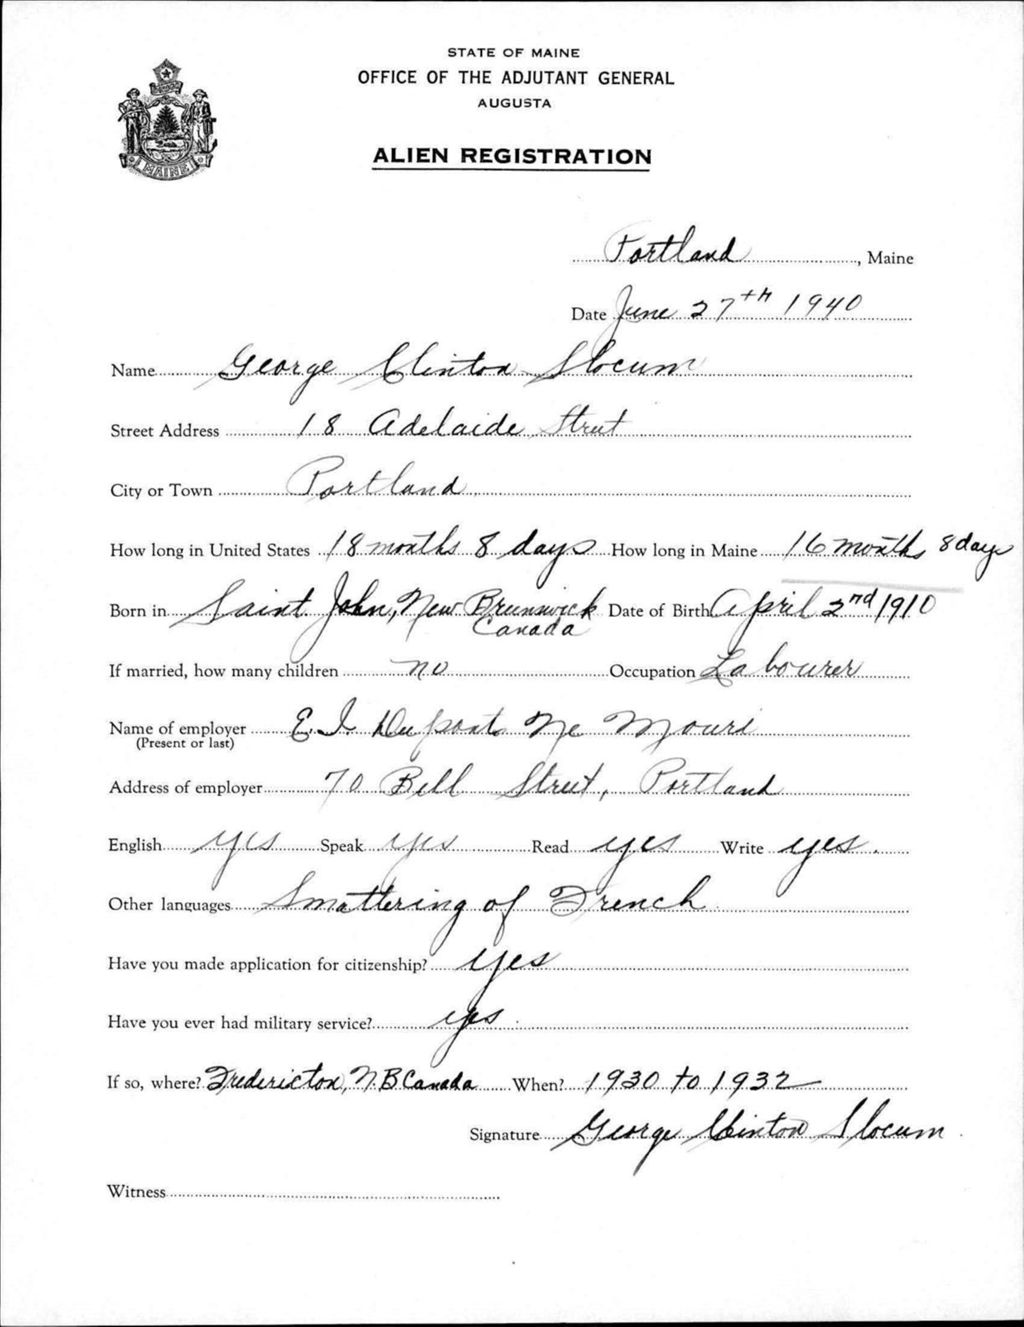 STATE OF MAINE
OFFICE OF THE ADJUTANT GENERAL
AUGUSTA
ALIEN REGISTRATION
MAINE
Portland, Maine
Date June 27th 1940
Name George Clinton Slocum
Street Address 18 Adelaide Street
City or Town Portland
How long in United States 18 months 8 days How long in Maine 16 months 8 days
Born in Saint John, New Brunswick Canada Date of Birth April 2nd 1910
If married, how many children no Occupation Labourer
Name of employer E. I. Dupont Ne Mours
(Present or last)
Address of employer 70 Bell Street, Portland
English yes Speak yes Read yes Write yes.
Other languages Smattering of French
Have you made application for citizenship? yes
Have you ever had military service? yes.
If so, where? Fredericton, N.B Canada When? 1930 to 1932
Signature George Clinton Slocum
Witness